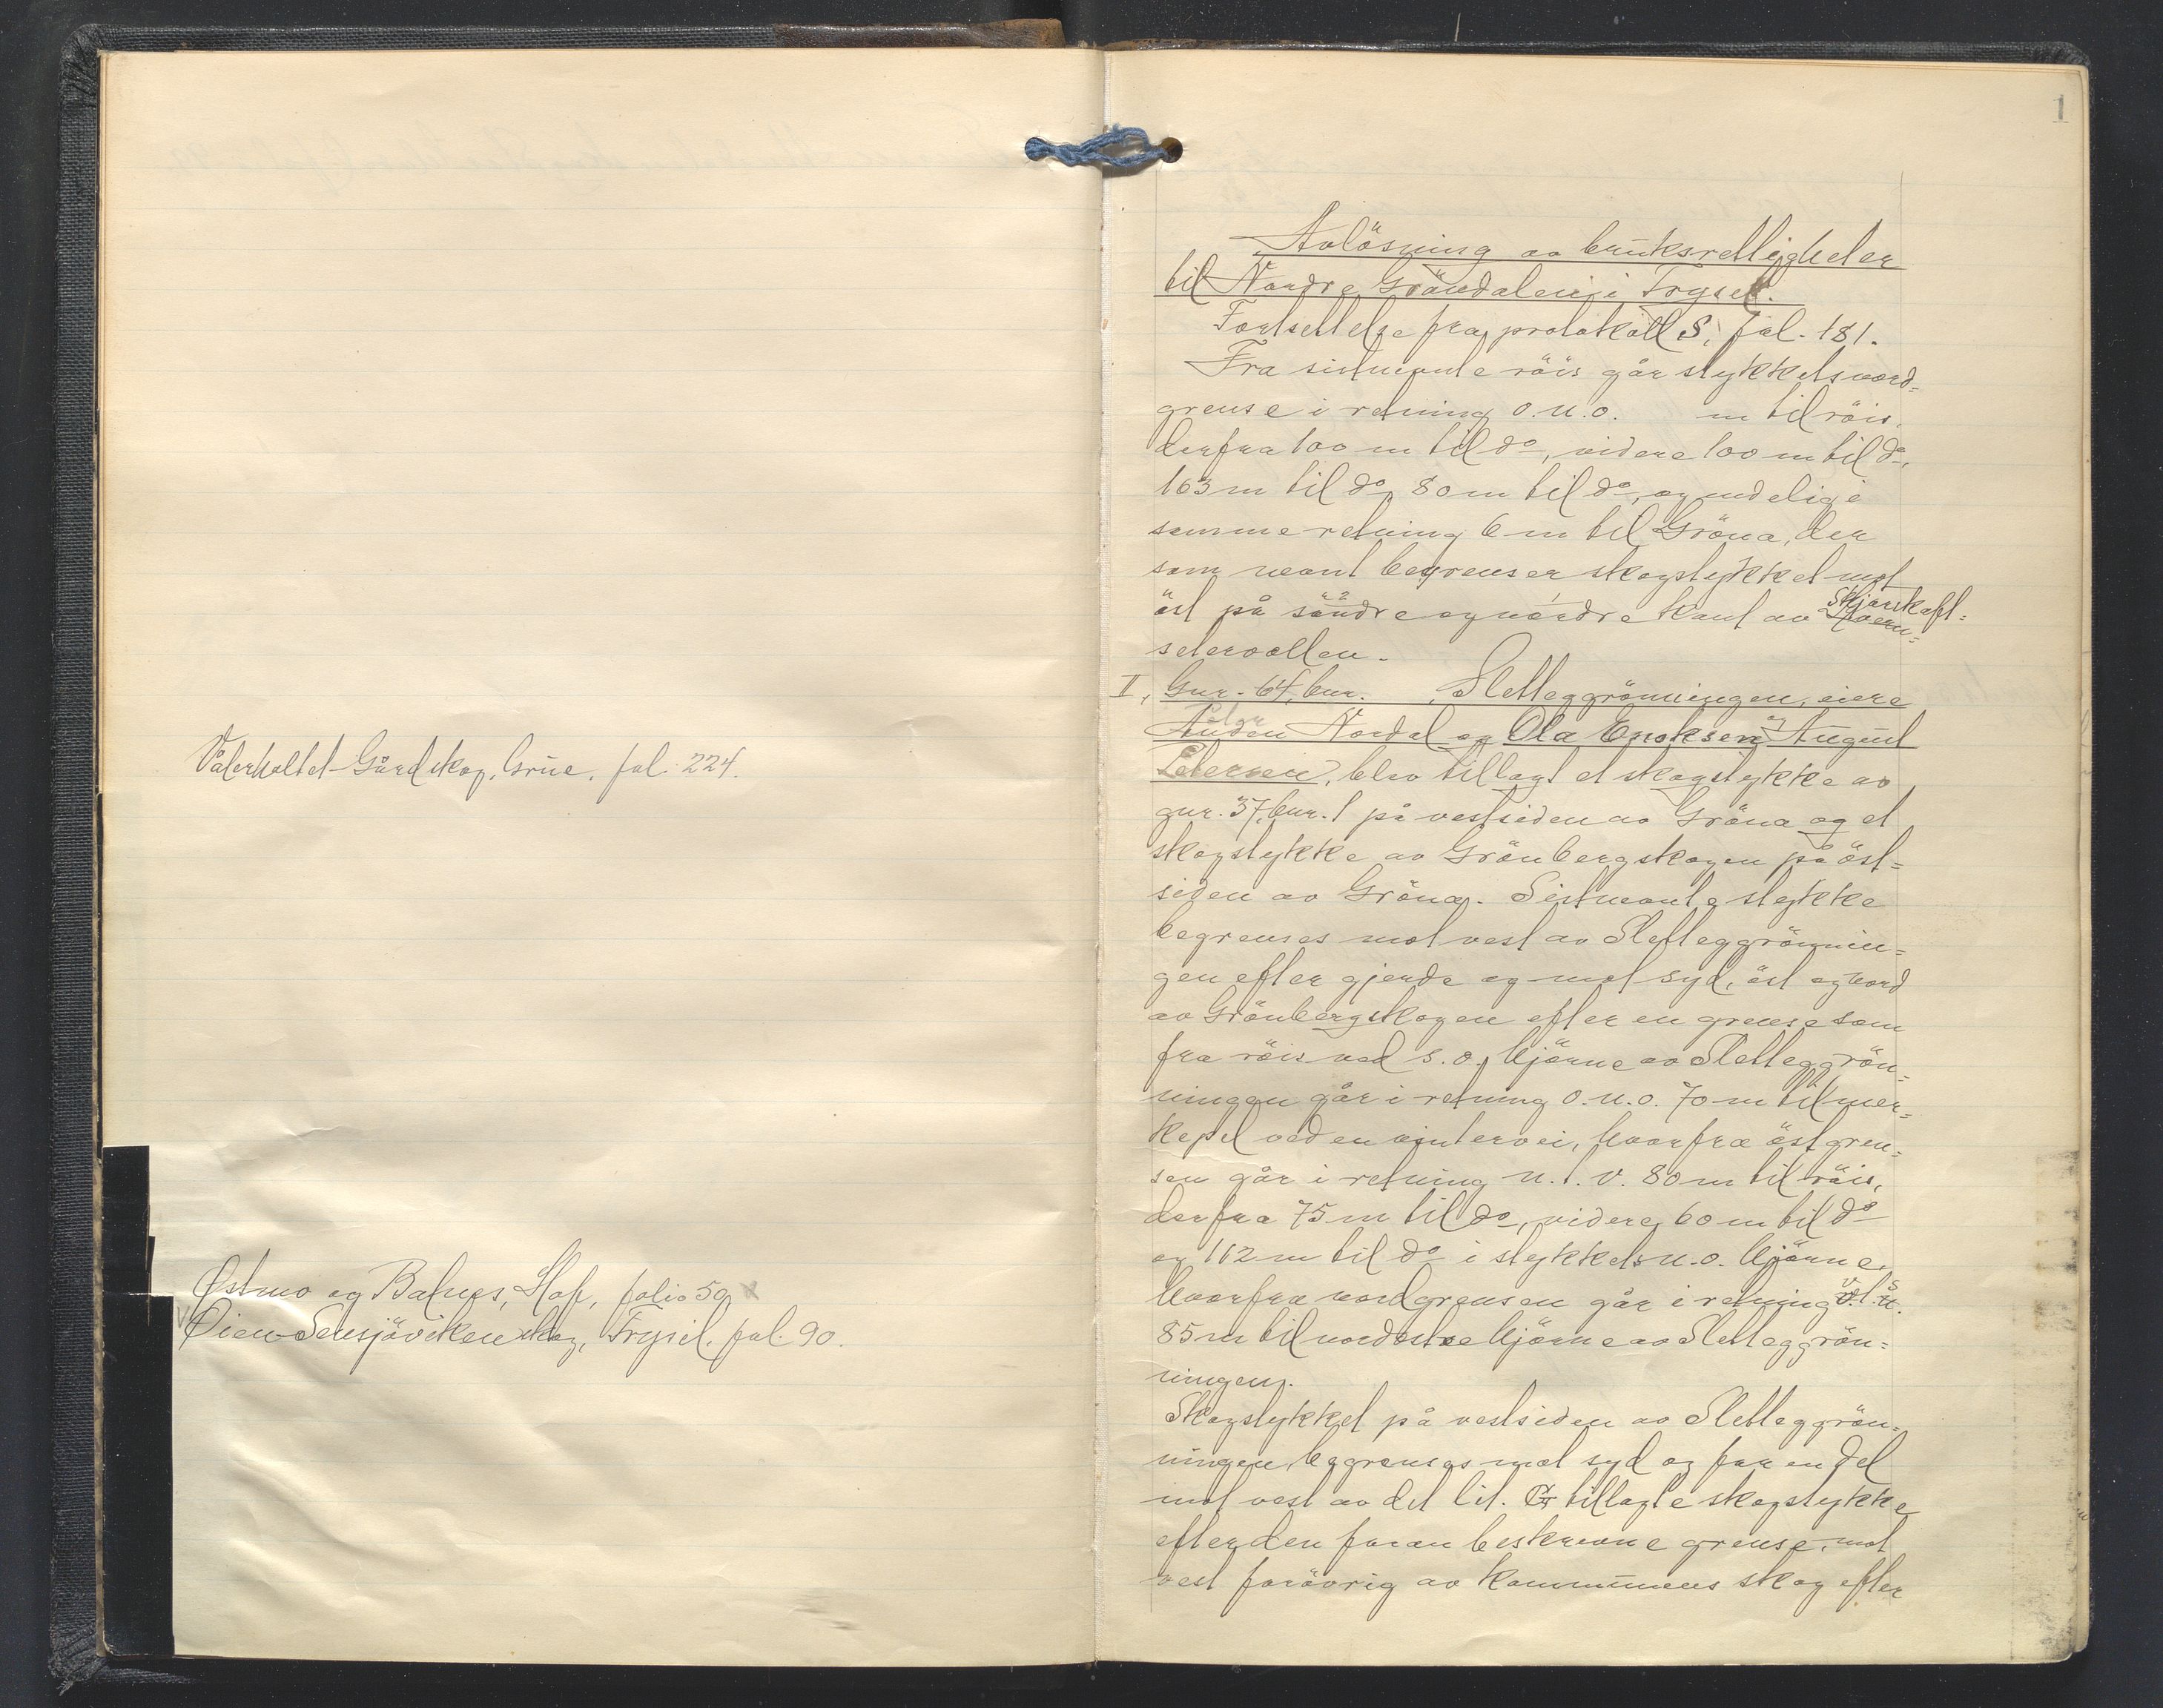 Vålerholtet-Gårdskog, Grue, fol. 224.
Østmo og Balnes, Hof, folio 50
Øien-Sensjöviken skog, Trysil, fol. 90.
1
Avlösning av bruksrettigheter
til Nordre Gröndalen i Trysil.
Fortsettelse fra protokoll S, fol. 181.
Fra sistnevnte röis går stykkets nord=
grense i retning o.n.o. m til röis,
derfra 100 m til do, videre 100 m til do,
163 m til do, 80 m til do, og endelig i
samme retning 6 m til Gröna, der
som nevnt begrenser skogstykket mot
öst på söndre og nordre kant av Skjærskaft=
setervollen.
II, Gnr. 64, bnr. , Sletteggrönningen, eiere
Peder Nordal og Ola Enoksen og August
Petersen, blev tillagt et skogstykke av
gnr. 37, bnr. 1 på vestsiden av Gröna og et
skogstykke av Grönbergskogen på öst=
siden av Gröna. Sistnevnte stykke
begrenses mot vest av Sletteggrönnin=
gen efter gjerde og mot syd, öst og nord
av Grönbergskogen efter en grense som
fra röis ved s.o. hjörne av Sletteggrön=
ningen går i retning o.n.o. 70 m til mer=
kepel ved en vintervei, hvorfra östgren=
sen går i retning n.t.v. 80 m til röis,
derfra 75 m til do, videre 60 m til do
og 112 m til do i stykkets n.o. hjörne,
hvorfra nordgrensen går i retning v.t.s.
85 m til nordostre hjörne av Sletteggrön=
ningen.
Skogstykket på vestsiden av Sletteggrön=
ningen begrenses mot syd og for en del
mot vest av det lit. G tillagte skogstykke
efter den foran beskrevne grense, mot
vest forövrig av kommunens skog efter